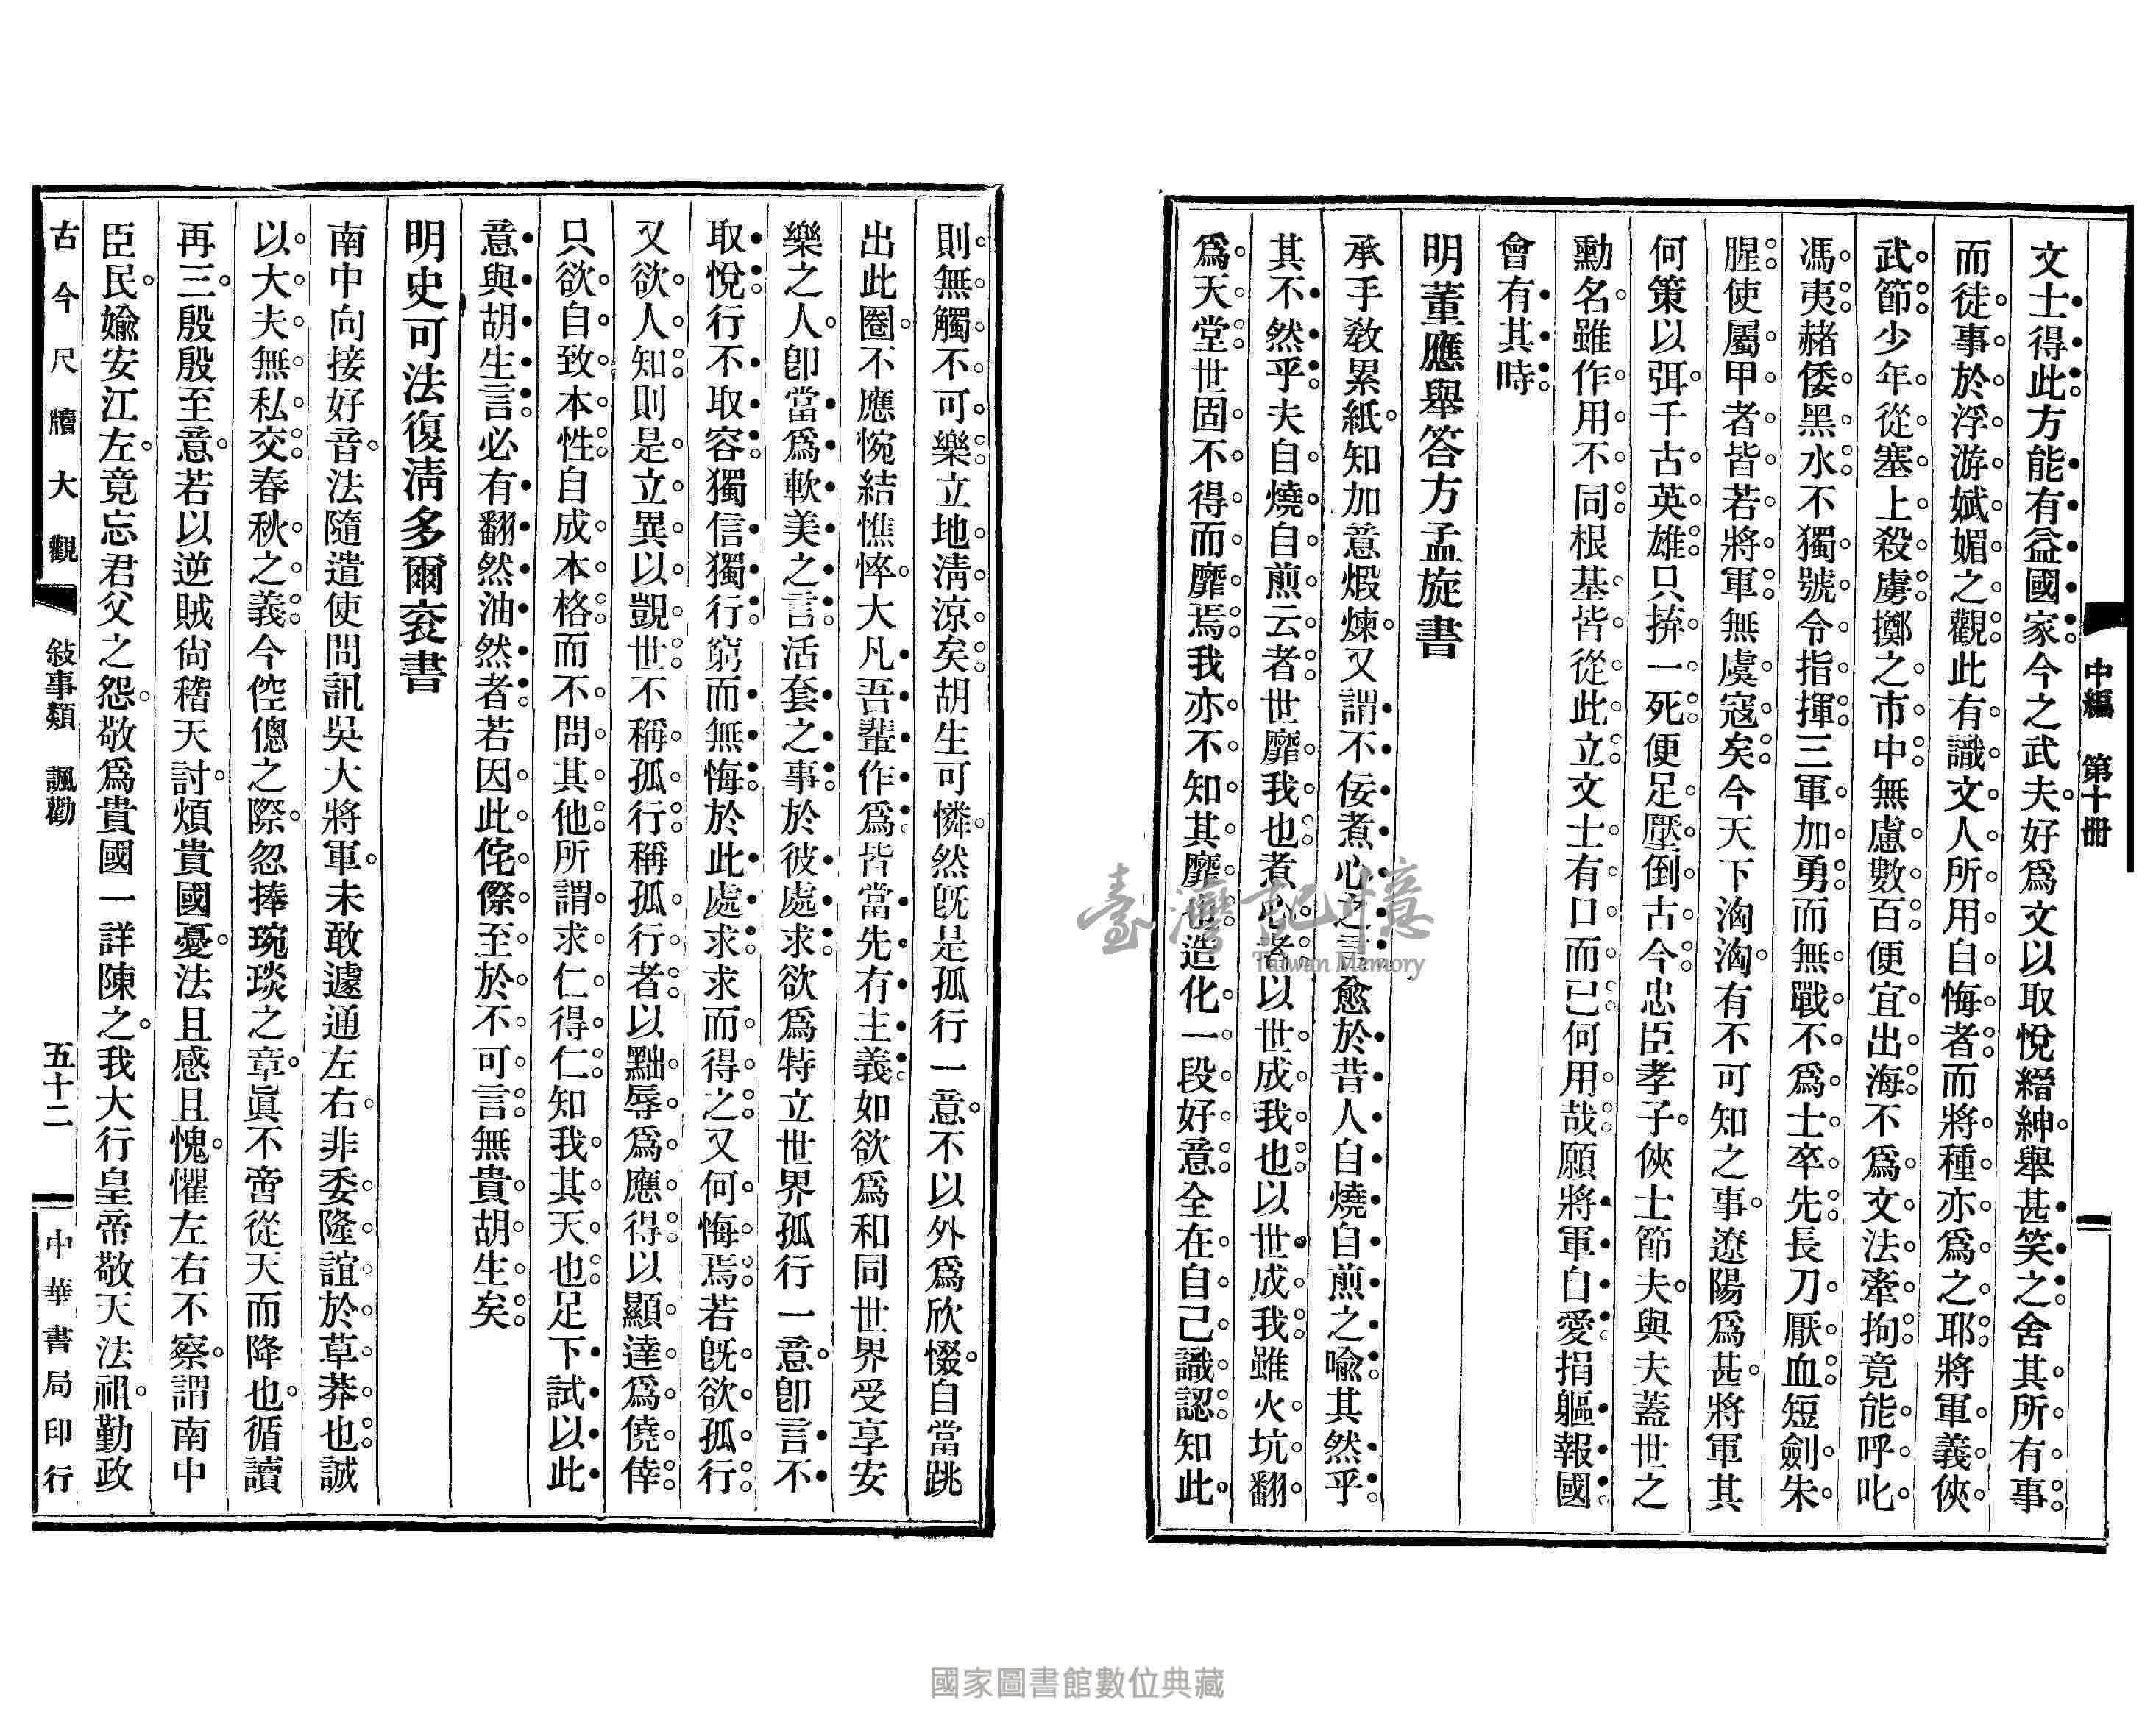 中編 第十冊
文士得此方能有益國家今之武夫好爲文以取悅縉紳舉甚笑之舍其所有事
而徒事於浮游娬媚之觀此有識文人所用自悔者而將種亦爲之耶將軍義俠
武節少年從塞上殺虜擲之市中無慮數百便宜出海不爲文法牽拘竟能呼叱
馮夷赭倭黑水不獨號令指揮三軍加勇而無戰不爲士卒先長刀厭血短劍朱
腥使屬甲者皆若將軍無虞寇矣今天下洶洶有不可知之事遼陽爲甚將軍其
何策以弭千古英雄只捹一死便足壓倒古今忠臣孝子俠士節夫與夫蓋世之
勳名雖作用不同根基皆從此立文士有口而已何用哉願將軍自愛捐軀報國
會有其時
明董應舉答方孟旋書
承手教累紙知加意煅煉又謂不佞煮心之言愈於昔人自燒自煎之喻其然乎
其不然乎夫自燒自煎云者世靡我也煮心者以世成我也以世成我雖火坑翻
爲天堂世固不得而靡焉我亦不知其靡也造化一段好意全在自己識認知此
則無觸不可樂立地淸涼矣胡生可憐然旣是孤行一意不以外爲欣惙自當跳
出此圈不應惋結憔悴大凡吾輩作爲皆當先有主義如欲爲和同世界受享安
樂之人卽當爲軟美之言活套之事於彼處求欲爲特立世界孤行一意卽言不
取悅行不取容獨信獨行窮而無悔於此處求求而得之又何悔焉若旣欲孤行
又欲人知則是立異以覬世不稱孤行稱孤行者以黜辱爲應得以顯達爲僥倖
只欲自致本性自成本格而不問其他所謂求仁得仁知我其天也足下試以此
意與胡生言必有翻然油然者若因此侘傺至於不可言無貴胡生矣
明史可法復淸多爾袞書
南中向接好音法隨遣使問訊吳大將軍未敢遽通左右非委隆誼於草莽也誠
以大夫無私交春秋之義今倥傯之際忽捧琬琰之章眞不啻從天而降也循讀
再三殷殷至意若以逆賊尙稽天討煩貴國憂法且感且愧懼左右不察謂南中
臣民媮安江左竟忘君父之怨敬爲貴國一詳陳之我大行皇帝敬天法祖勤政
古今尺牘大觀 敍事類 諷勸 五十二 中華書局印行
臺灣記憶
Taiwan Memory
國家圖書館數位典藏